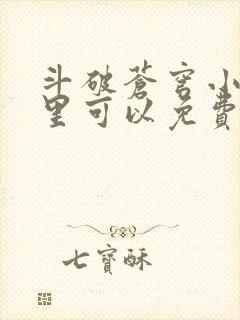 斗破苍穹小
里可以免费
七寶酥